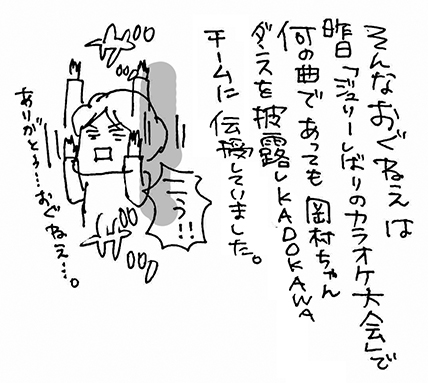 そんなおぐねえは
昨日「ジュリーしばりのカラオケ大会」で
何の曲であっても岡村ちゃん
ダンスを披露しKADOKAWA
チームに伝授していました。
こう!!
ありがとう…おぐねえ…。